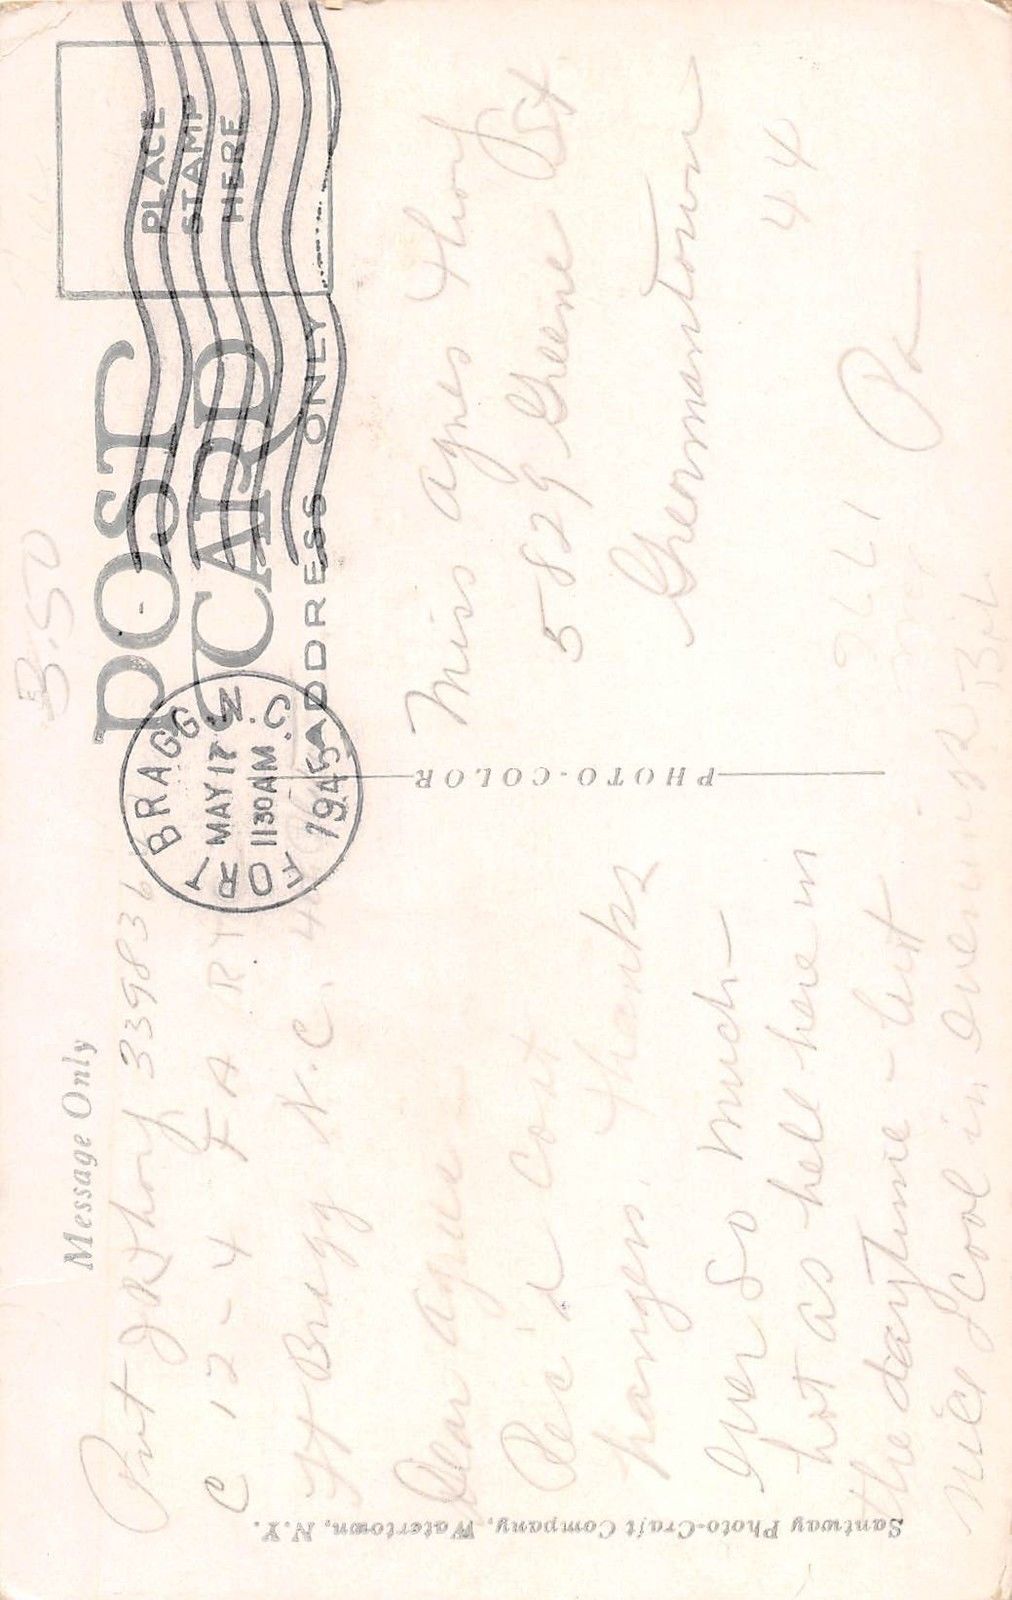 3.50
POST CARD
PLACE
STAMP
HERE
ADDRESS ONLY
FORT BRAGG
MAY 17
1130 AM
1945
N.C.
Message Only
Pvt J R Thorf 339836
C 12-4 F A R
Ft Bragg N.C.
Dear Agnes
Rec'd coat
hangers. Thanks
ever so much -
hot as hell here in
the daytime - but
nice & cool in evenings Bill
Miss Agnes Thorf
5829 Greene St
Germantown
44
Pa
PHOTO-COLOR
Santway Photo-Craft Company, Watertown, N.Y.